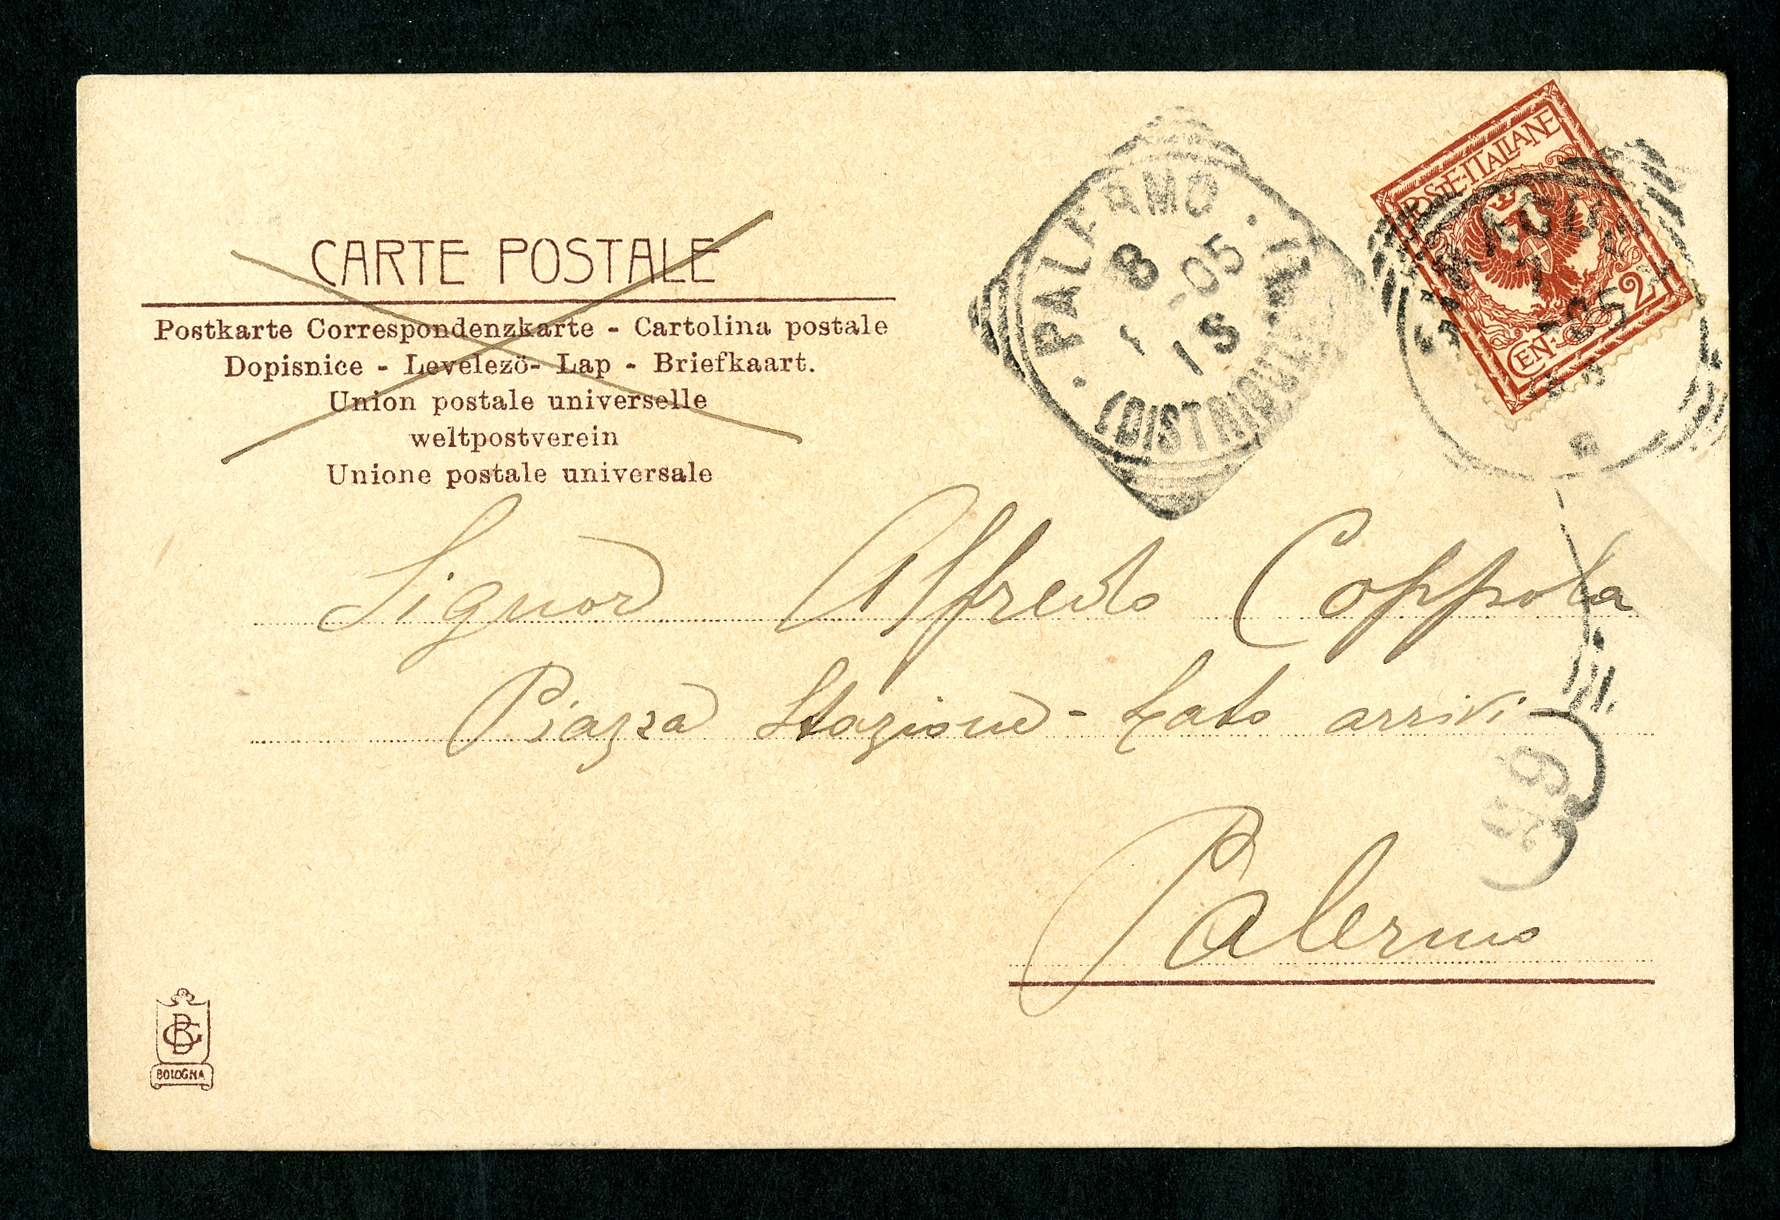 CARTE POSTALE
Postkarte Correspondenzkarte - Cartolina postale
Dopisnice - Levelezö- Lap - Briefkaart.
Union postale universelle
weltpostverein
Unione postale universale
POSTE·ITALIANE
CEN. 2
PALERMO
8
-05
1S
(DISTRIBUZ
7
05
Signor Alfredo Coppola
Piazza Stazione - Lato arrivi -
Palermo
BOLOGNA